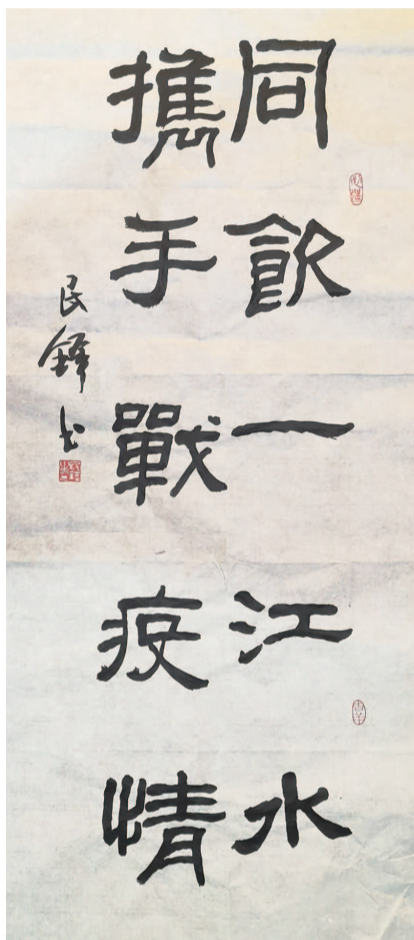 同飲一江水
攜手戰疫情
民鋒书